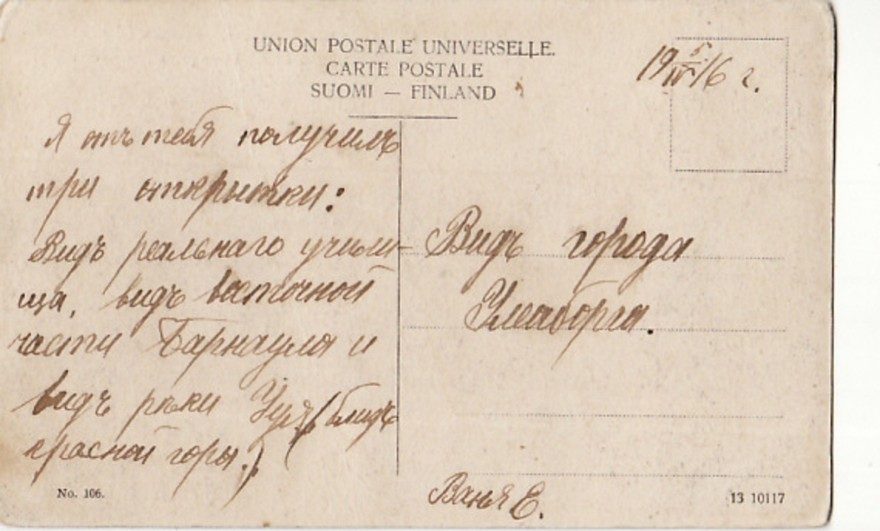 UNION POSTALE UNIVERSELLE.
CARTE POSTALE
SUOMI — FINLAND
19 5/IV 16 г.
Я отъ тебя получилъ
три открытки:
Видъ реальнаго учили-
ща, видъ восточной
части Барнаула и
видъ рѣки (близъ
красной горы.)
Видъ города
Улеаборга.
Ваня Е.
No. 106.
13 10117